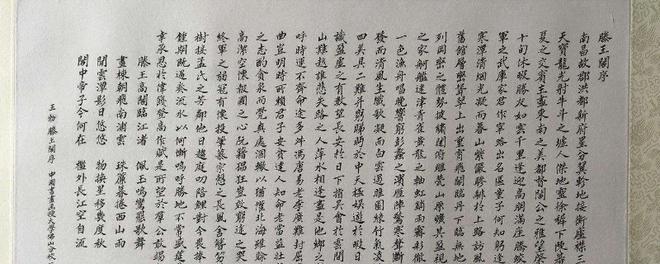 滕王閣序
南昌故郡洪都新府星分翼軫地接衡廬襟三
天寶龍光射牛斗之墟人傑地靈徐孺下陳蕃
夏之交賓主盡東南之美都督閻公之雅望棨
十旬休暇勝友如雲千里逢迎高朋滿座騰蛟
軍之武庫家君作宰路出名區童子何知躬逢
寒潭清烟光凝而暮山紫儼驂騑於上路訪風
舊館層巒聳翠上出重霄飛閣翔丹下臨無地
列岡巒之體勢披繡闥俯雕甍山原曠其盈視
之家舸艦迷津青雀黃龍之軸虹銷雨霽彩徹
一色漁舟唱晚響窮彭蠡之濱雁陣驚寒聲斷
發而清風生纖歌凝而白雲遏睢園綠竹氣凌
四美具二難并窮睇眄於中天極娛遊於暇日
識盈虛之有數望長安於日下指吳會於雲間
山難越誰悲失路之人萍水相逢盡是他鄉之
呼時運不齊命途多舛馮唐易老李廣難封屈
曲豈明時所賴君子安貧達人知命老當益壯
之志酌貪泉而覺爽處涸轍以猶懽北海雖賒
高潔空懷報國之心阮籍猖狂豈效窮途之哭
終軍之弱冠有懷投筆慕宗愨之長風舍簪笏
樹接孟氏之芳鄰他日趨庭叨陪鯉對今晨捧
鍾期既遇奏流水以何慚嗚呼勝地不常盛筵
幸承恩於偉餞登高作賦是所望於羣公敢竭
滕王高閣臨江渚 佩玉鳴鸞罷歌舞
畫棟朝飛南浦雲 珠簾暮捲西山雨
閒雲潭影日悠悠 物換星移幾度秋
閣中帝子今何在 檻外長江空自流
王勃 滕王閣序 中國書畫函授大學佛山分校